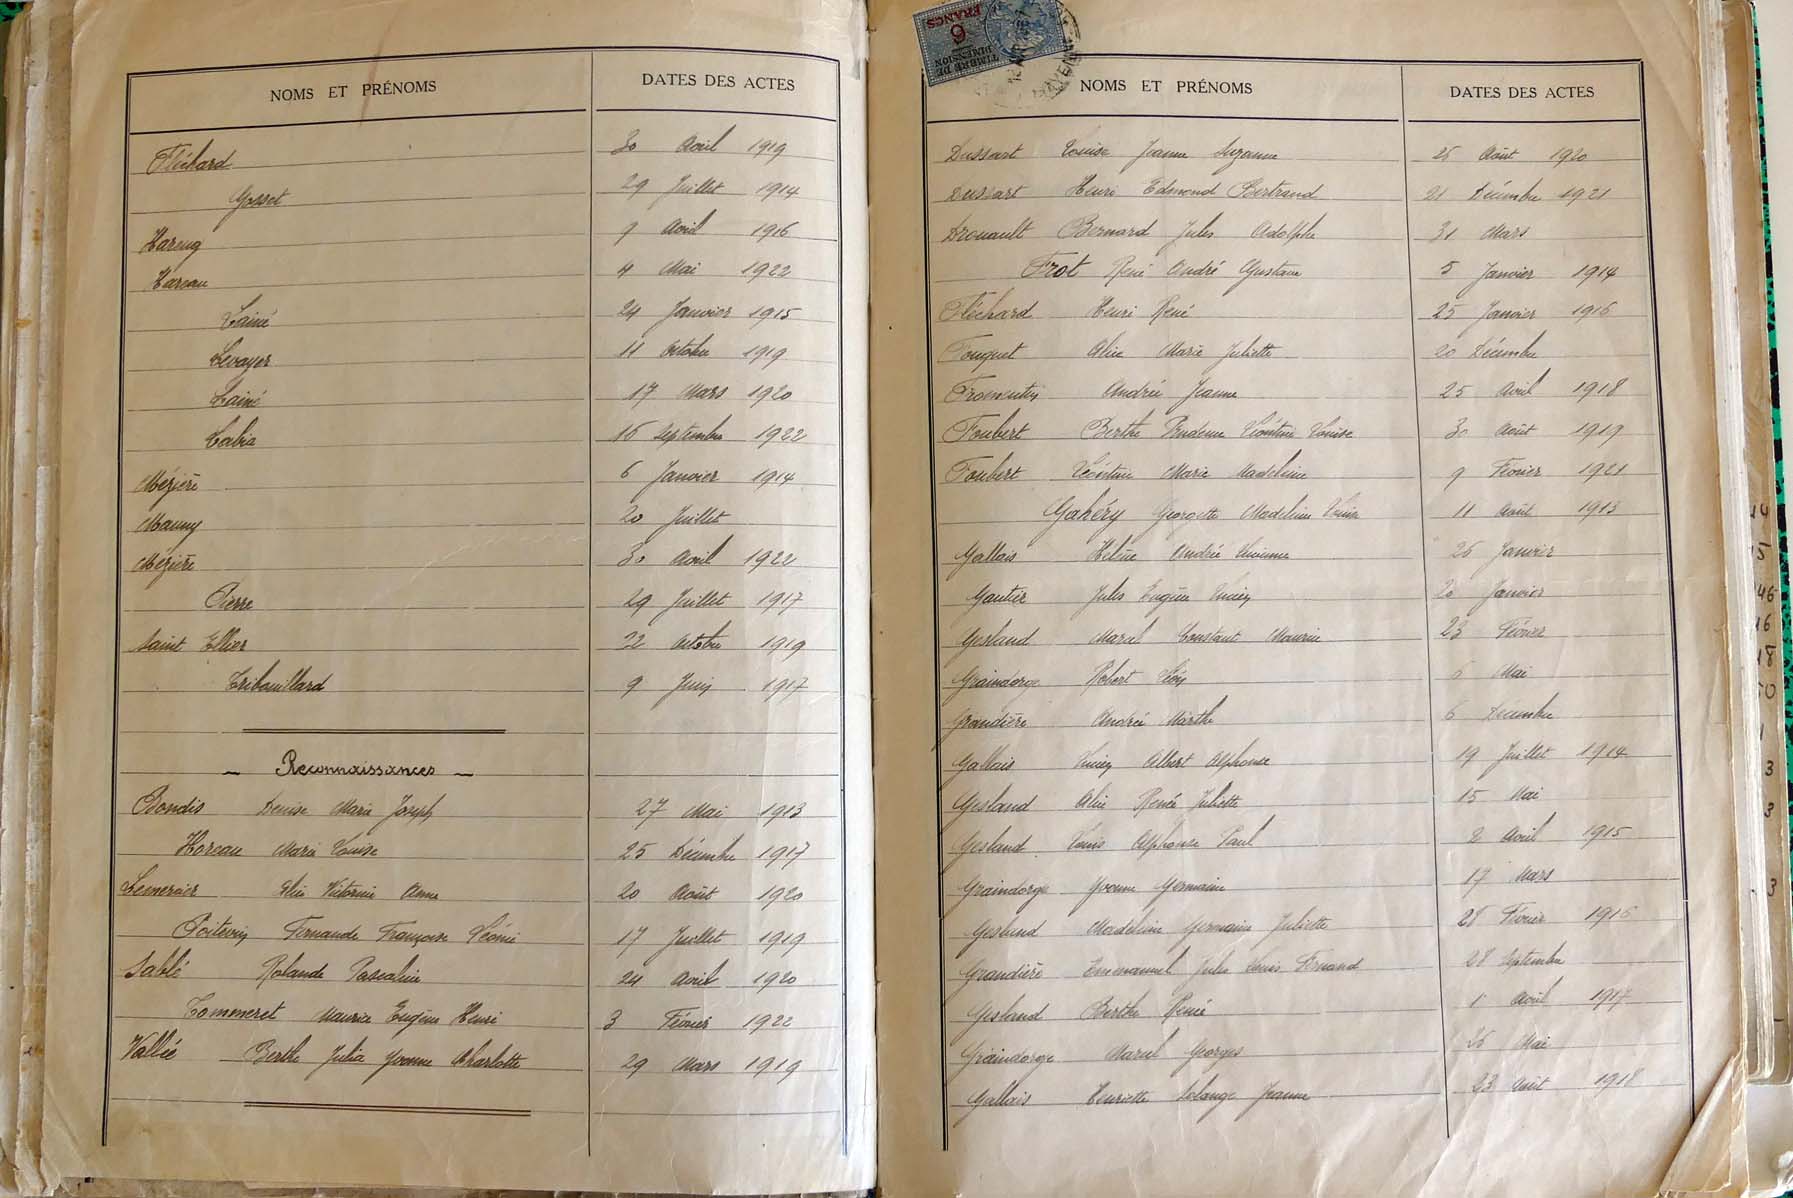 NOMS ET PRÉNOMS DATES DES ACTES
Fléchard 30 Avril 1919
Gosset 29 Juillet 1914
Hareng 9 Avril 1916
Hareau 4 Mai 1922
Lainé 24 Janvier 1915
Levayer 11 Octobre 1919
Lainé 17 Mars 1920
Labia 16 Septembre 1922
Mézière 6 Janvier 1914
Mauny 20 Juillet
Mézière 30 Avril 1922
Pierre 29 Juillet 1917
Saint Ellier 22 Octobre 1919
Tribouillard 9 Juin 1917
Reconnaissances
Bondis Denise Marie Joseph 27 Mai 1913
Horeau Marie Louise 25 Décembre 1917
Lemercier Victorine Anna 20 Août 1920
Poitevin Fernande Françoise Léonie 17 Juillet 1919
Sablé Rolande Pascaline 24 Avril 1920
Tommeret Maurice Eugène Henri 3 Février 1922
Vallée Berthe Julia Yvonne Charlotte 29 Mars 1919
6 FRANCS
TIMBRE DE DIMENSION
NOMS ET PRÉNOMS DATES DES ACTES
Dussart Louise Jeanne Suzanne 25 Août 1920
Dussart Henri Edmond Bertrand 21 Décembre 1921
Drouault Bernard Jules Adolphe 31 Mars
Frot René André Gustave 5 Janvier 1914
Fléchard Henri René 25 Janvier 1916
Fouquet Alice Marie Juliette 20 Décembre
Fromentin Andrée Jeanne 25 Avril 1918
Foubert Berthe Prudence Léontine Louise 30 Août 1919
Foubert Léontine Marie Madeleine 9 Février 1921
Gahéry Georgette Madeleine Louise 11 Août 1913
Gallais Hélène Andrée 26 Janvier
Gautier Jules Eugène Lucien 20 Janvier
Gesland Marcel Constant Maurice 23 Février
Graindorge Robert Léon 6 Mai
Grandière Andrée Marthe 6 Décembre
Gallais Lucien Albert Alphonse 19 Juillet 1914
Gesland Alice Renée Juliette 15 Mai
Gesland Louis Alphonse Paul 2 Avril 1915
Graindorge Yvonne Germaine 17 Mars
Gesland Madeleine Germaine Juliette 28 Février 1916
Grandière Emmanuel Jules Louis Fernand 28 Septembre
Gesland Berthe Renée 1 Avril 1917
Graindorge Marcel Georges 26 Mai
Gallais Henriette Solange Jeanne 23 Août 1918